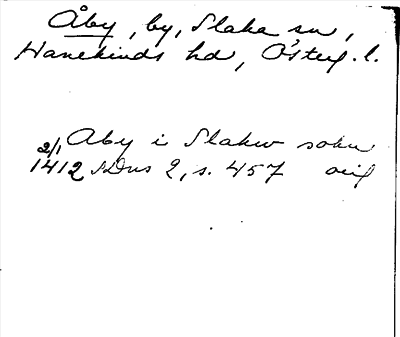 Åby, by, Slaka sn,
Hanekinds hd, Östergl. l.
Aby i Slakw sokn
2/1 1412 SDns 2, s. 457 orig